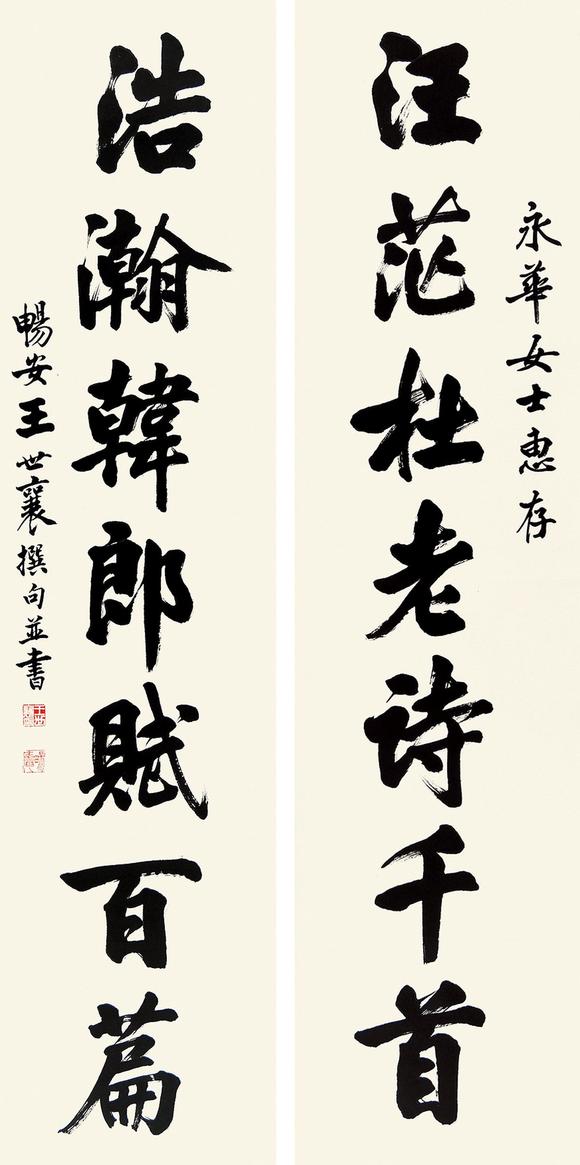 永華女士惠存
汪茫杜老诗千首
浩瀚韓郎賦百篇
暢安王世襄撰句並書